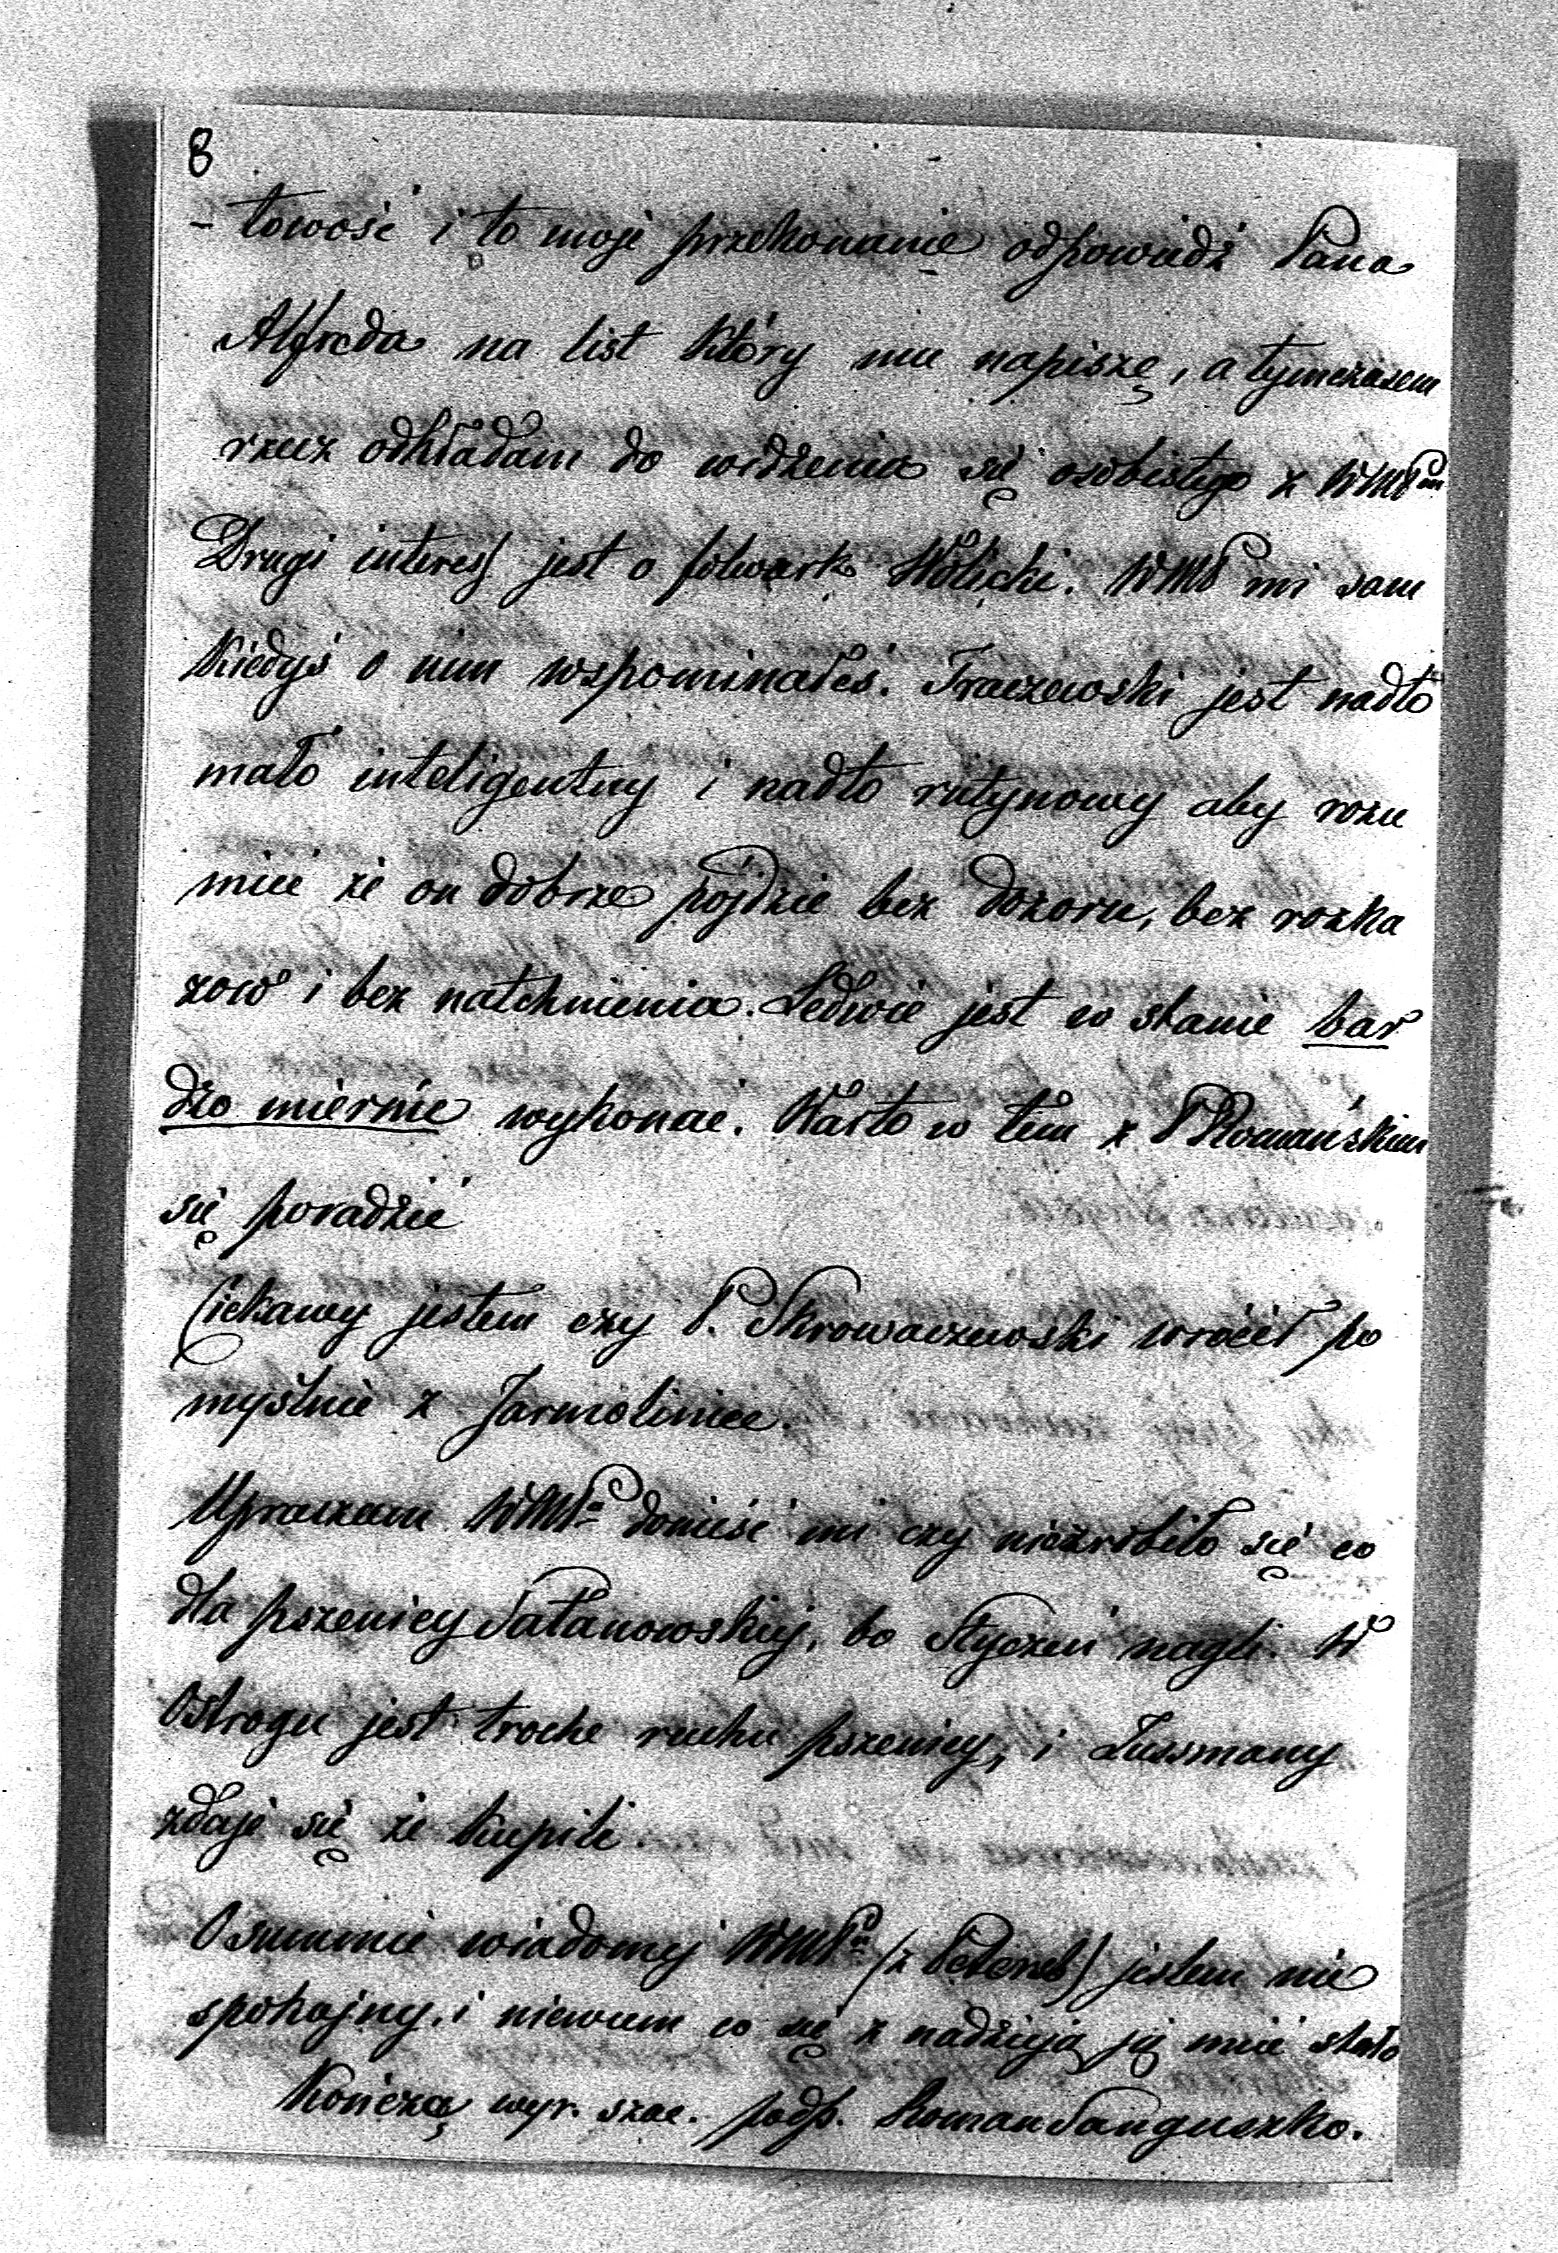 8
- towość i to moje przekonanie odpowiedź Pana
Alfreda na list który mu napiszę, a tymczasem
rzecz odkładam do widzenia się osobistego z WMPm
Drugi interes jest o folwark Holicki. WMP mi sam
kiedyś o nim wspominałeś. Traczewski jest nadto
mało inteligentny i nadto rutynowy aby rozu
mieć że on dobrze pójdzie bez dozoru, bez rozka
zow i bez natchnienia. Ledwie jest w stanie bar
dzo miernie wykonać. Warto w tem z P Romańskim
się poradzić
Ciekawy jestem czy P. Skrowaczewski wrócił po
myślnie z Jarmoliniec.
Upraszam WMPa donieść mi czy niezrobiło się co
dla pszenicy Satanowskiej, bo Styczeń nagli. W
Ostrogu jest troche ruchu pszenicy, i Zussmany
zdaje się że kupili.
O summie wiadomej WMPu jestem nie
spokojny. i niewiem co się z nadzieją jej mieć stało
Kończą wyr. szac. podp. Roman Sanguszko.